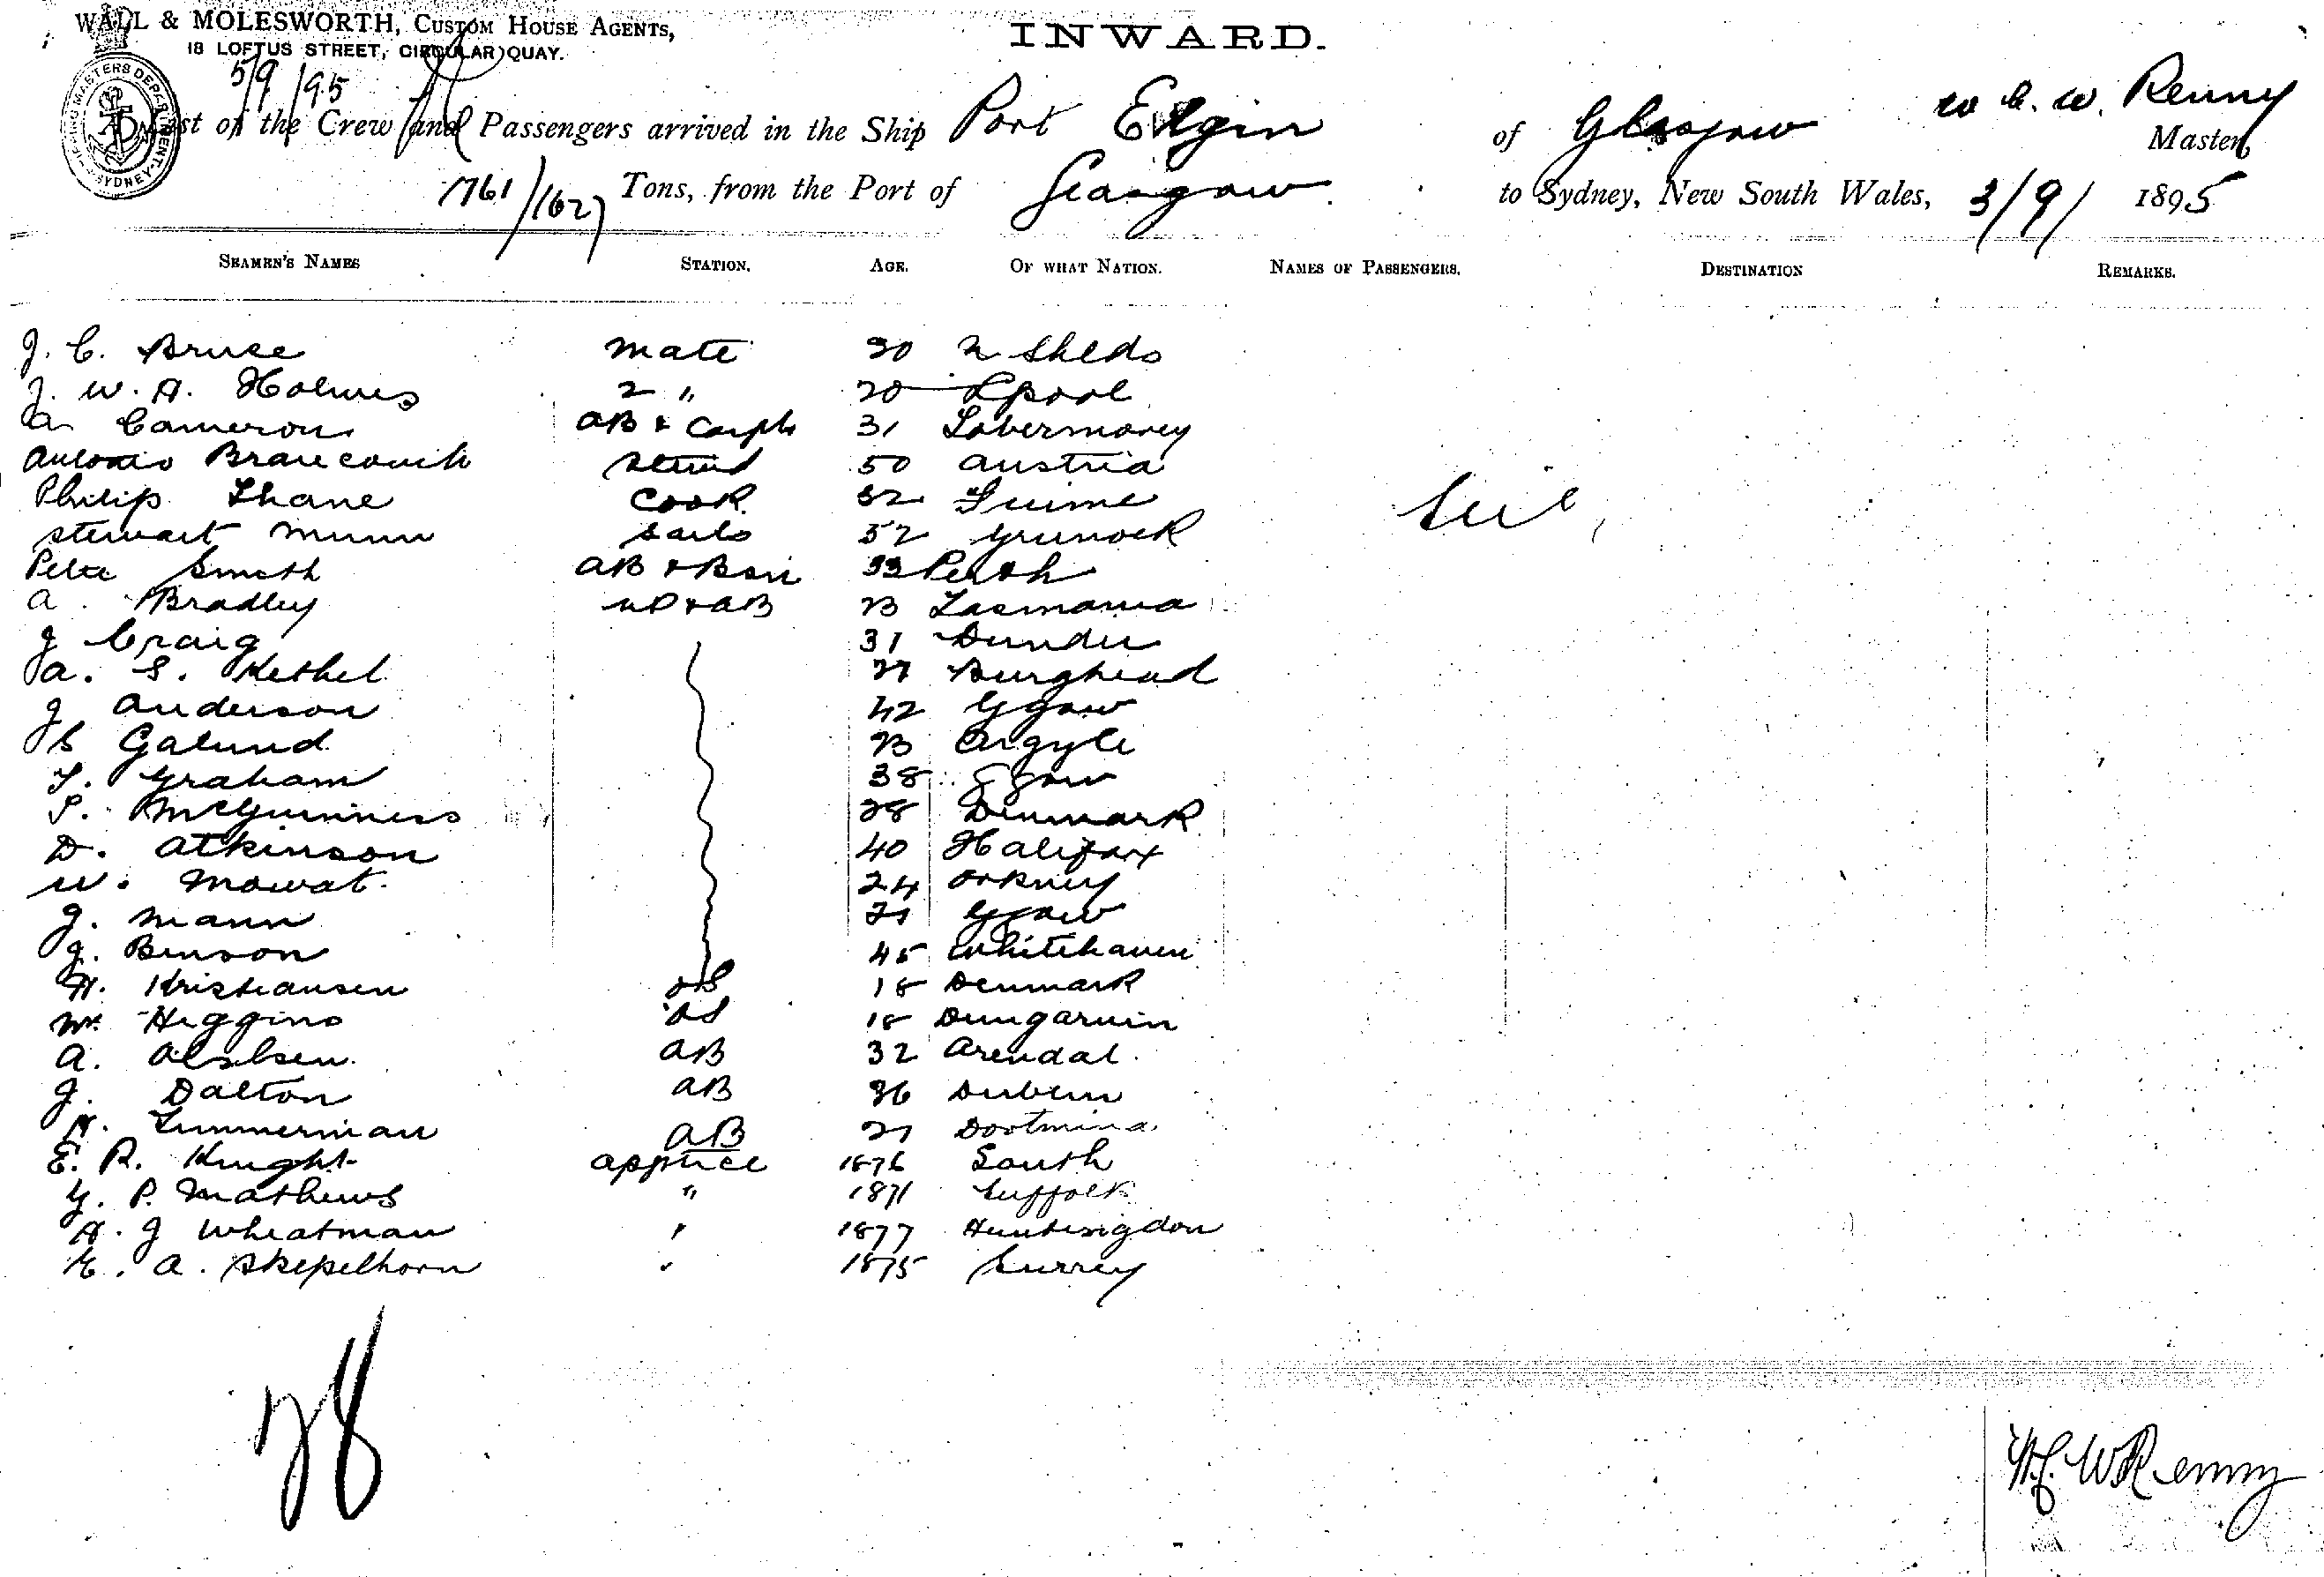 WALL & MOLESWORTH, CUSTOM HOUSE AGENTS,
18 LOFTUS STREET, CIRCULAR QUAY.
INWARD.
5/9/95
A List of the Crew and Passengers arrived in the Ship Port Elgin of Glasgow W C. W. Renny Master,
1761/1627 Tons, from the Port of Glasgow to Sydney, New South Wales, 3/9/ 1895
SEAMEN'S NAMES STATION. AGE. OF WHAT NATION. NAMES OF PASSENGERS. DESTINATION REMARKS.
J. C. Bruce mate 30 N Shelds
J. W. A. Holmes 2 " 20 Lpool
A Cameron AB & Carptr 31 Tobermorey
Antonio 50 Austria
Philip Thane Cook 52 Fiume
Stewart Munn Sails 52 Grunock
Peter Smith AB & Bsn 33 Perth
A. Bradley AB 23 Tasmania
J Craig 31 Dundee
A. S. Kethel 27 Burghead
J Anderson 42 Ggow
C Galund 23 Argyle
T. Graham 38 Ggow
P. McGuinness 28 Denmark
D. Atkinson 40 Halifax
W. Mowat 24 Orkney
J. Mann 21 Ggow
J. Benson 45 Whitehaven
H. Kristiansen OS 18 Denmark
M. Higgins OS 18 Dungarvin
A. AB 32 Arendal
J. Dalton AB 36 Dublin
H. Zimmerman AB 21
E. R. Knight apptice 1876 South
G. P. Mathews " 1871 Suffolk
H. J Wheatman " 1877 Huntingdon
E. A. Skepelhorn " 1875 Surrey
Nil
28
W.C. W Renny